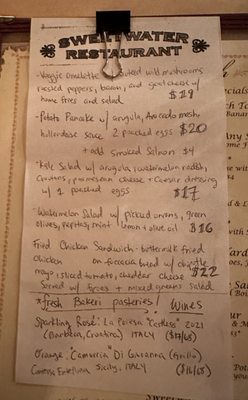 SWEETWATER
RESTAURANT
-Veggie Omelette w/ sauteed wild mushrooms
roasted peppers, bacon, and goat cheese w/
home fries and salad $19
-Potato Pancake w/ arugula, Avocado mash,
hollandaise sauce 2 poached eggs $20
+ add smoked Salmon $4
-Kale Salad w/ arugula, watermelon radish,
Croutons, parmesean cheese + Caesar dressing
w/ 1 poached eggs $17
-Watermelon Salad w/ pickled onions, green
olives, pepitas, mint lemon + olive oil $16
Fried Chicken Sandwich - buttermilk fried
Chicken on foccacia bread w/ chipotle
mayo, sliced tomato, cheddar cheese $22
Served w/ fries + mixed greens salad
*fresh Bakeri pasteries! Wines
Sparkling Rosé: La 2021
(Barbera, Croatina) ITALY ($17/68)
Orange, "Camurria" Di Giovanna (Grillo)
Contessa Entellina Sicily, ITALY ($16/68)